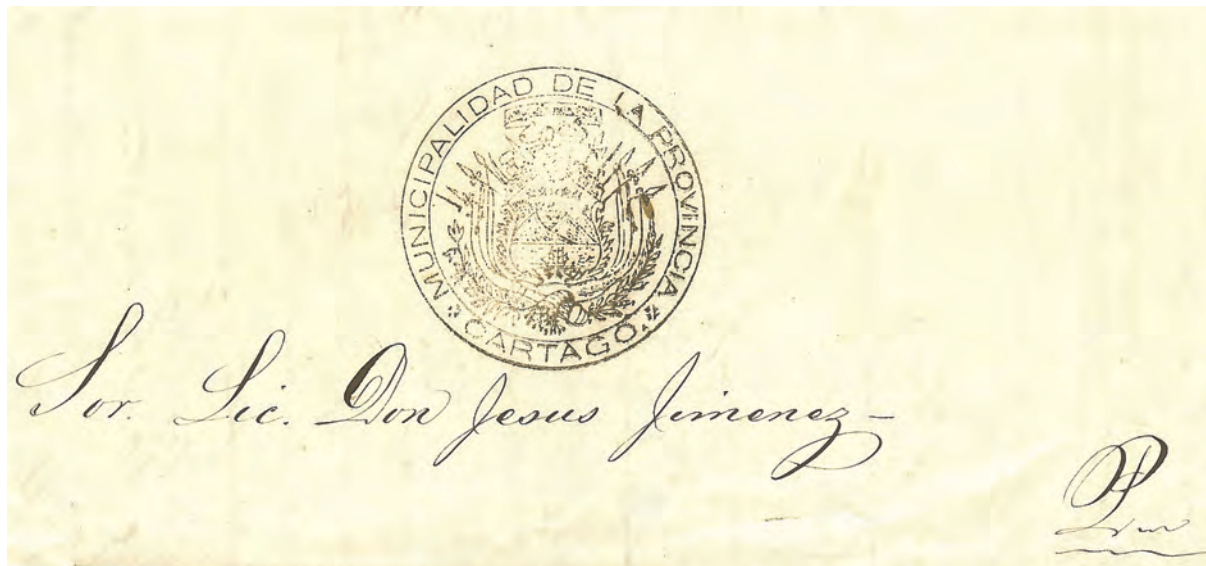 MUNICIPALIDAD DE LA PROVINCIA
CARTAGO
Sor. Lic. Don Jesus Jimenez-